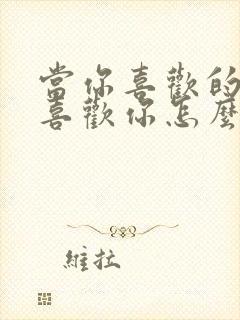 當你喜歡的
喜歡你怎麼
維拉